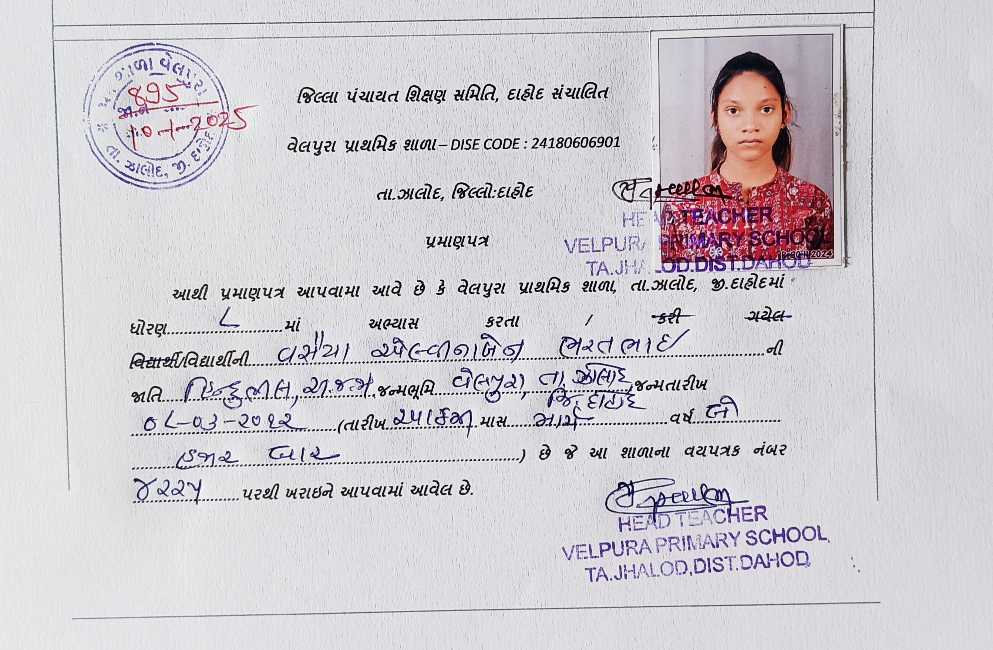 પ્રા. શાળા વેલપુરા
895
જા.નં.
10-1-2025
તા. ઝાલોદ, જી. દાહોદ
જિલ્લા પંચાયત શિક્ષણ સમિતિ, દાહોદ સંચાલિત
વેલપુરા પ્રાથમિક શાળા – DISE CODE : 24180606901
તા.ઝાલોદ, જિલ્લો:દાહોદ
HEAD TEACHER
VELPURA PRIMARY SCHOOL
TA.JHALOD.DIST.DAHOD
પ્રમાણપત્ર
આથી પ્રમાણપત્ર આપવામા આવે છે કે વેલપુરા પ્રાથમિક શાળા, તા.ઝાલોદ, જી.દાહોદમાં
ધોરણ......૮......માં અભ્યાસ કરતા / કરી ગયેલ
વિદ્યાર્થી/વિદ્યાર્થીની વસૈયા એલ્વીનાબેન ભરતભાઈ ની
જાતિ હિન્દુ ભીલ, અ.જ.જા. જન્મભૂમિ વેલપુરા, તા. ઝાલોદ, જિ. દાહોદ જન્મતારીખ
૦૮-૦૩-૨૦૧૨ (તારીખ આઠમી માસ માર્ચ વર્ષ બે
હજાર બાર ) છે જે આ શાળાના વયપત્રક નંબર
૪૨૨૫ પરથી ખરાઇને આપવામાં આવેલ છે.
HEAD TEACHER
VELPURA PRIMARY SCHOOL,
TA.JHALOD,DIST.DAHOD